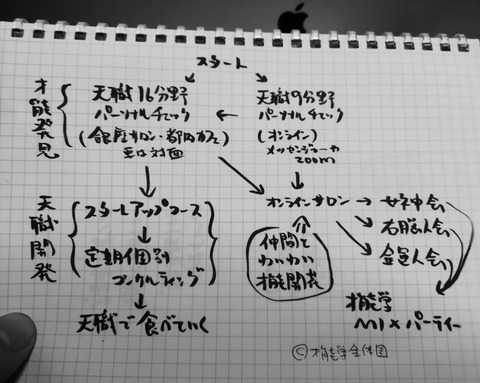 スタート
才能発見
天職16分野
パーソナルチェック
(銀座サロン・都内カフェ)
又は対面
天職9分野
パーソナルチェック
(オンライン)
メッセンジャーや
zoom
天職開発
スタートアップコース
定期個別
コンサルティング
天職で食べていく
オンラインサロン
仲間と
わいわい
才能開花
女神会
右脳人会
金運人会
才能学
MIXパーティー
©才能学全体図